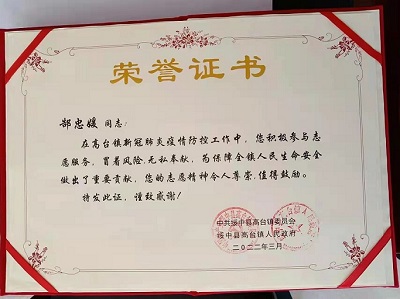 荣誉证书
郜忠媛 同志：
在高台镇新冠肺炎疫情防控工作中，您积极参与志
愿服务，冒着风险，无私奉献，为保障全镇人民生命安全
做出了重要贡献，您的志愿精神令人尊崇，值得鼓励。
特发此证，谨致感谢！
中共绥中县高台镇委员会
绥中县高台镇人民政府
二〇二二年三月